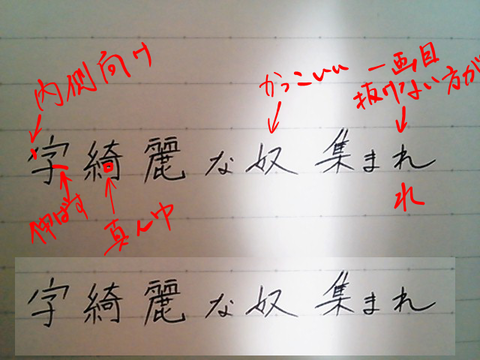 内側向け
かっこいい
一画目
抜けない方が
字綺麗な奴 集まれ
伸ばす
真ん中
れ
字綺麗な奴 集まれ